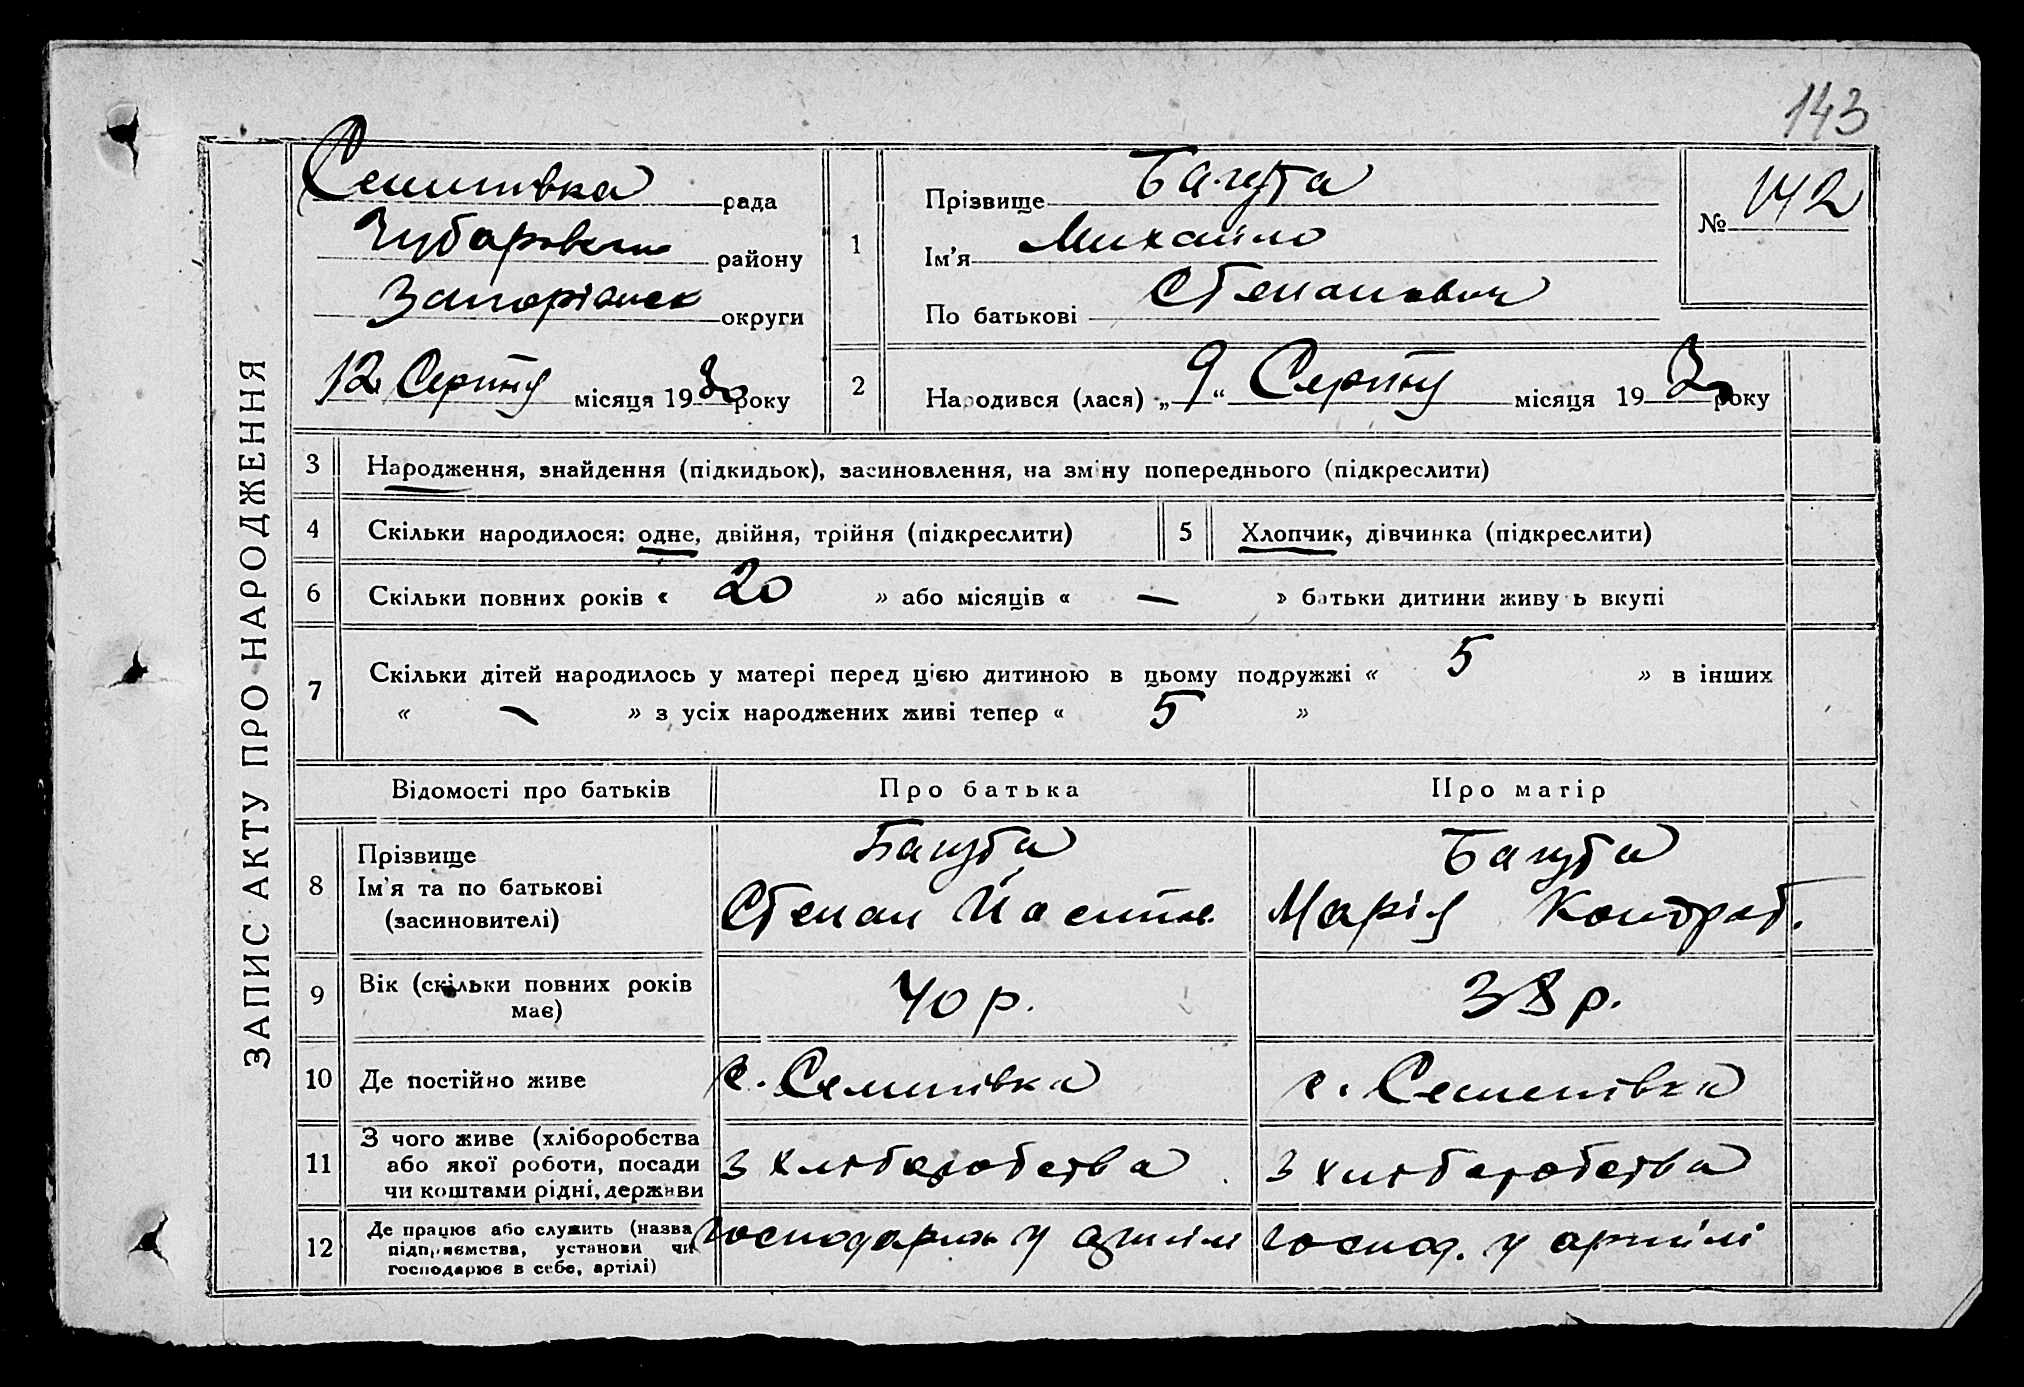 143
ЗАПИС АКТУ ПРО НАРОДЖЕННЯ
Семенівка рада
Чубаровськ району
Запоріжск округи
12 Серпня місяця 1930 року
1
Прізвище Багута
Ім'я Михайло
По батькові Степанович
№ 142
2
Народився (лася) „9“ Серпня місяця 1930 року
3 Народження, знайдення (підкидьок), засиновлення, на зміну попереднього (підкреслити)
4 Скільки народилося: одне, двійня, трійня (підкреслити)
5 Хлопчик, дівчинка (підкреслити)
6 Скільки повних років « 20 » або місяців « — » батьки дитини живуть вкупі
7 Скільки дітей народилось у матері перед цією дитиною в цьому подружжі « 5 » в інших
« — » з усіх народжених живі тепер « 5 »
Відомості про батьків Про батька Про матір
8 Прізвище
Ім'я та по батькові
(засиновителі)
Багута
Степан
Багута
Марія Кондрат.
9 Вік (скільки повних років
має)
40 р.
38 р.
10 Де постійно живе
с. Семенівка
с. Семенівка
11 З чого живе (хліборобства
або якої роботи, посади
чи коштами рідні, держави
з хліборобства
з хліборобства
12 Де працює або служить (назва
підприємства, установи чи
господарює в себе, артілі)
у артілі
господ. у артілі